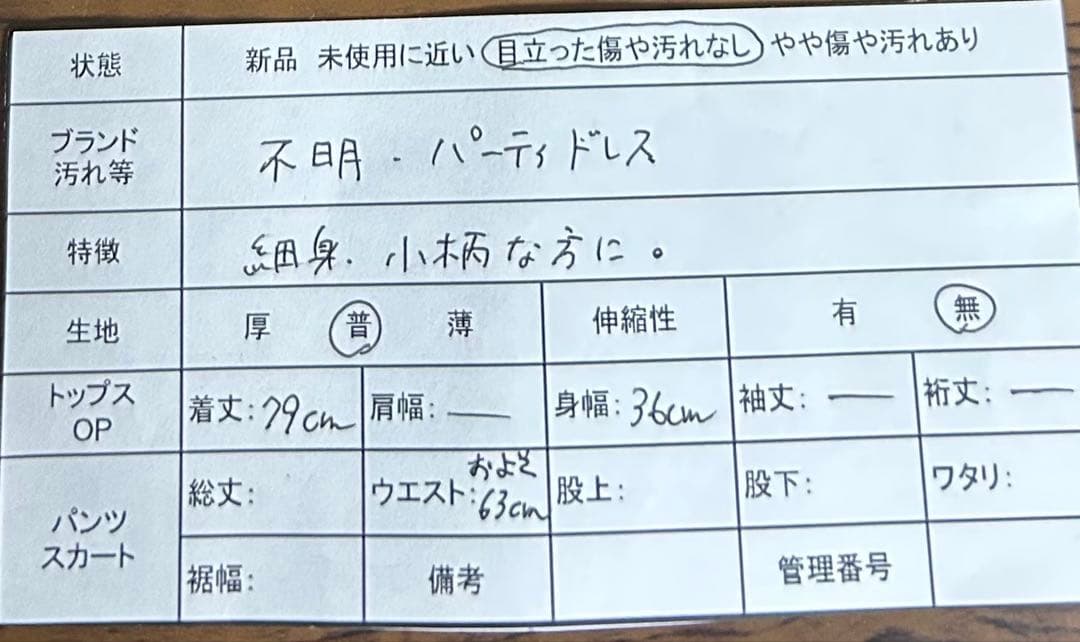 状態 新品 未使用に近い 目立った傷や汚れなし やや傷や汚れあり
ブランド
汚れ等
不明・パーティドレス
特徴 細身.小柄な方に。
生地 厚 普 薄 伸縮性 有 無
トップス
OP
着丈:79cm 肩幅:― 身幅:36cm 袖丈:― 裄丈:―
パンツ
スカート
総丈: ウエスト:およそ63cm 股上: 股下: ワタリ:
裾幅: 備考 管理番号